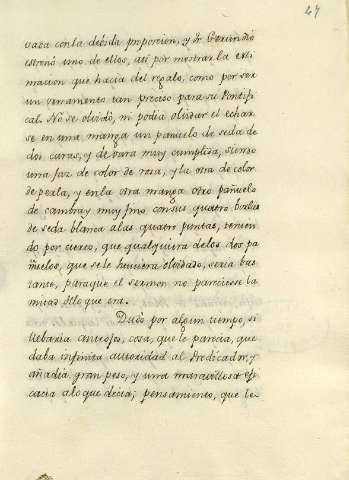 47
vaza con la debida proporcion, y Fr Gerundio
estrenó uno de ellos, asi por mostrar la esti
macion que hacia del regalo, como por ser
un ornamento tan preciso para su Pontifi
cal. No se olvidó, ni podia olvidar el echar
se en una manga un pañuelo de seda de
dos caras, y de vara muy cumplida, siendo
una faz de color de rosa, y la otra de color
de perla, y en la otra manga otro pañuelo
de cambray muy fino con sus quatro borlas
de seda blanca a las quatro puntas, tenien
do por cierto, que qualquiera de los dos pa
ñuelos, que se le huviera olvidado, seria bas
tante, para que el sermon no pareciesse la
mitad de lo que era.
Dudó por algun tiempo, si
llebaria anteojos, cosa, que le parecia, que
daba infinita autoridad al Predicador, y
añadia gran peso, y una maravillosa efi
cacia a lo que decia; pensamiento, que le